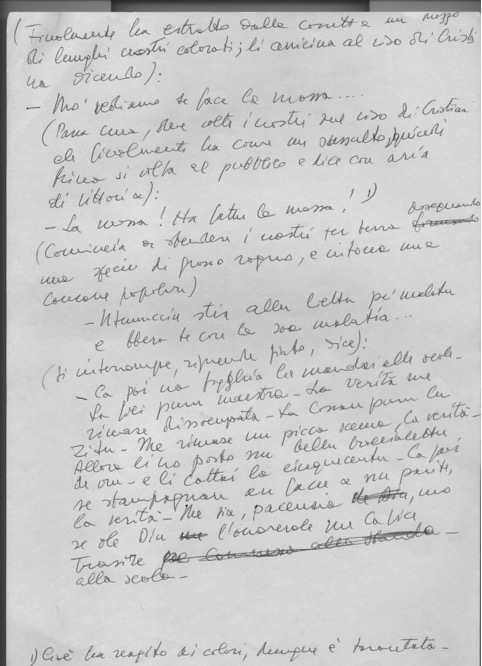 (Finalmente ha estratto dalla cassetta un mazzo
di lunghi nastri colorati; li avvicina al viso di Cristi
na dicendo):
- Mo' vediamo se face la mossa....
(Passa una, due volte i nastri sul viso di Cristina
che finalmente ha come un sussulto, quindi
si volta al pubblico e dice con aria
di vittoria):
- La mossa! Ha fatto la mossa! 1)
(Comincia a stendere i nastri per terra disegnando
una specie di grosso ragno, e intona una
canzone popolare)
- stia alla lettu pe' malata
e con la soa malatia...
(Si interrompe, riprende fiato, dice):
- Ca poi na figghia la mandai alle scole -
La fici pura maestra - La verità me
rimase disoccupata - La pura la
zita - Me rimase un picca scema, la verità -
Allora li ho posto nu bellu braccialettu
de oru - e li la cinquecentu - Ca poi
se an facce a nui pariti,
la verità - Me sia, pacenzia de Diu, mo
se ole Diu l'onorevole me
trasire commessa alla
alla scola -
1) Cioè ha reagito ai colori, dunque è tarantata -